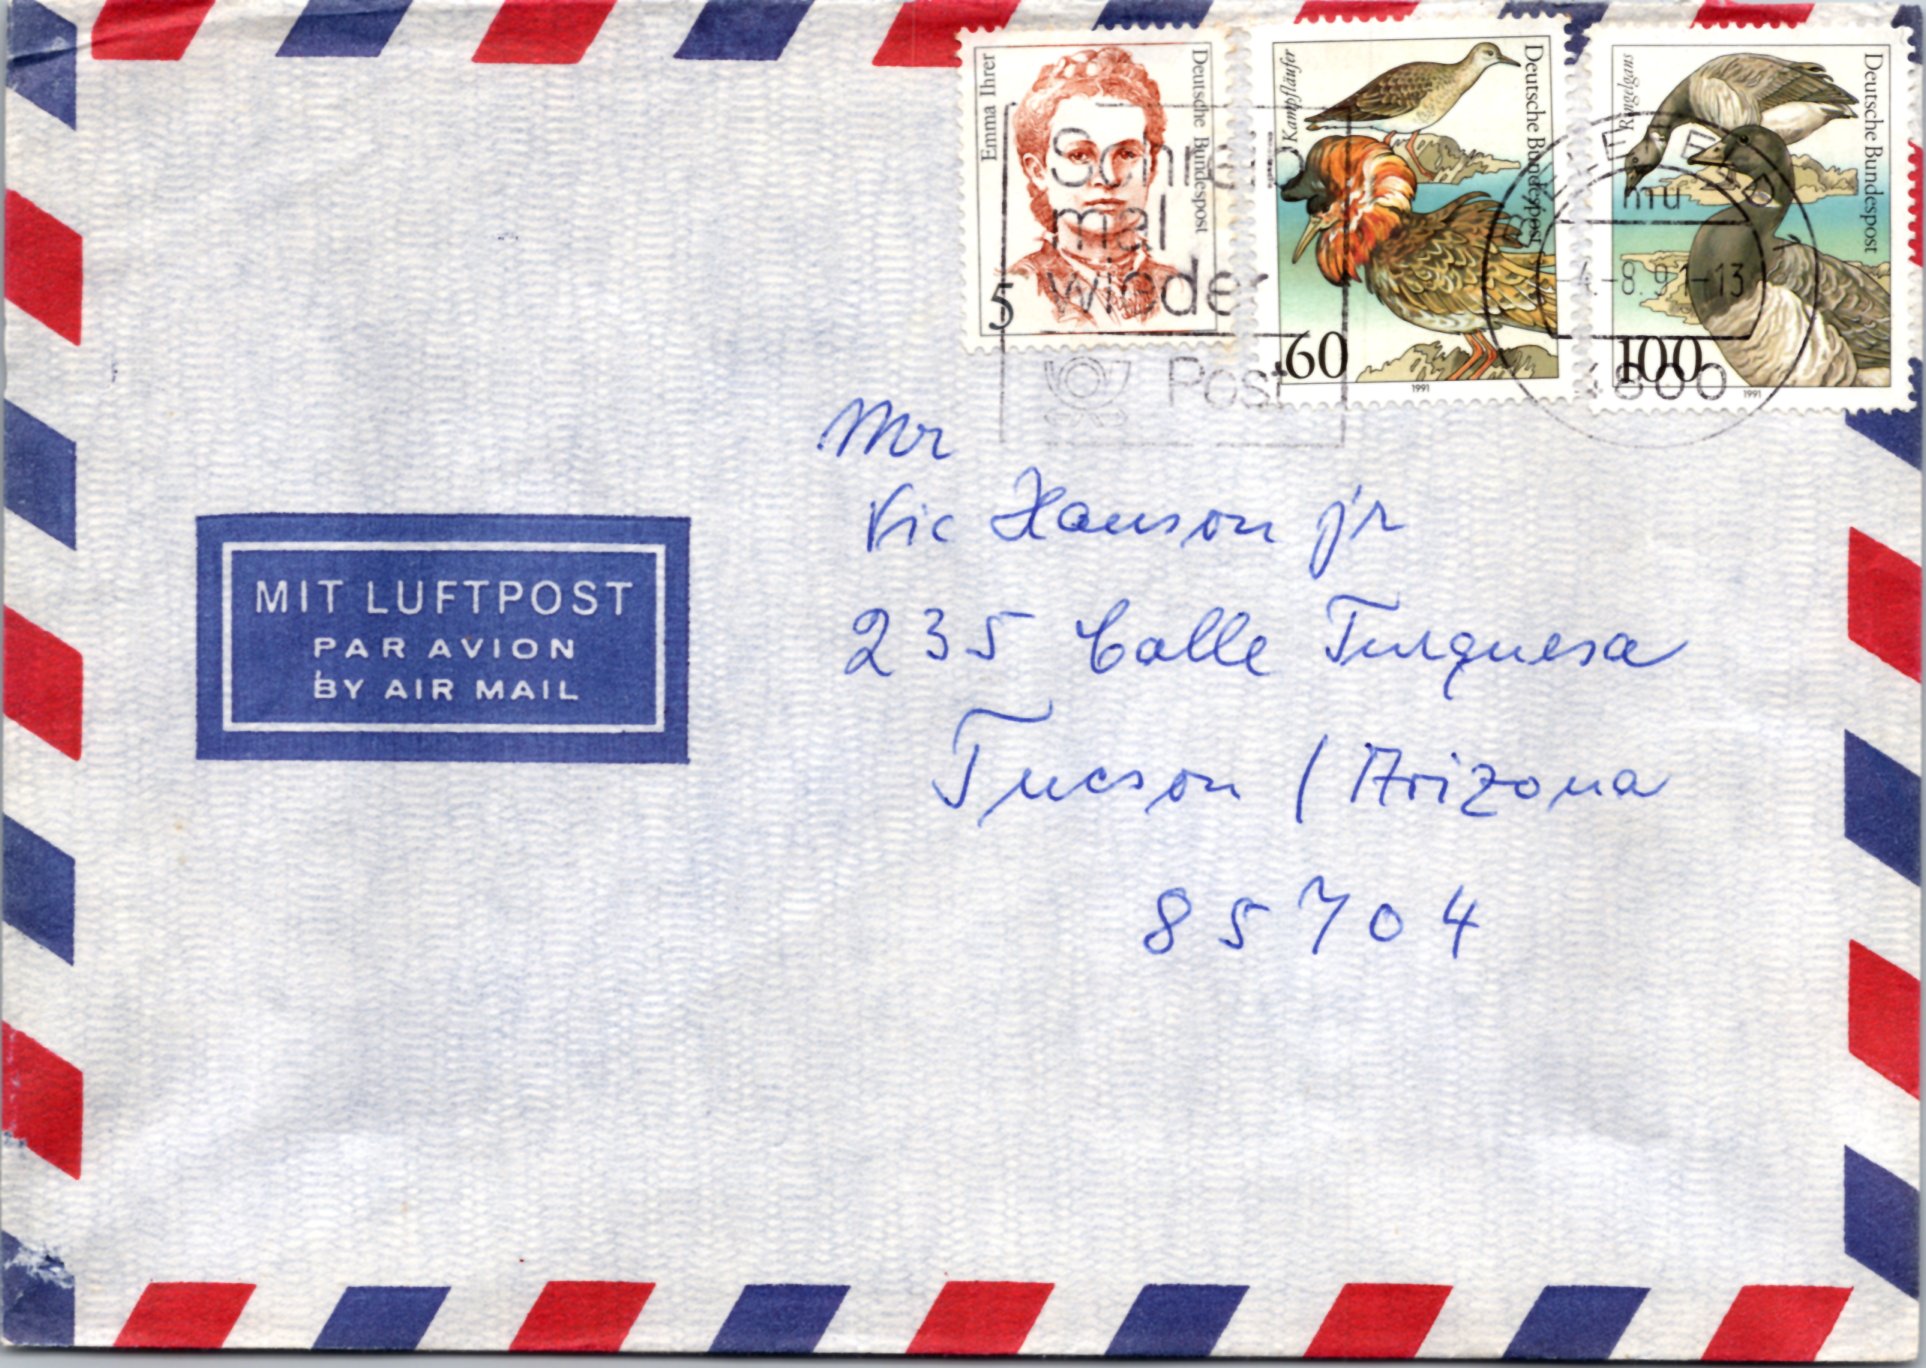 Emma Ihrer
Deutsche Bundespost
5
Kampfläufer
Deutsche Bundespost
60
1991
Ringelgans
Deutsche Bundespost
100
1991
Schreib
mal
wieder
Post
mu
-8.91-13
4800
Mr
Vic Hanson jr
235 Calle Turquesa
Tucson / Arizona
85704
MIT LUFTPOST
PAR AVION
BY AIR MAIL